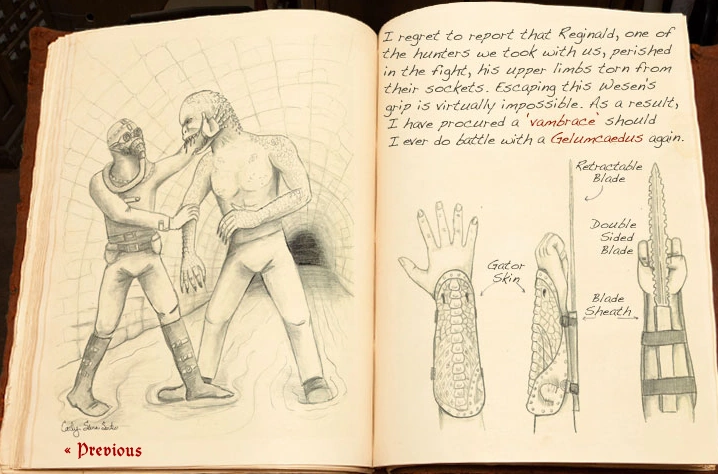 I regret to report that Reginald, one of
the hunters we took with us, perished
in the fight, his upper limbs torn from
their sockets. Escaping this Wesen's
grip is virtually impossible. As a result,
I have procured a 'vambrace' should
I ever do battle with a Gelumcaedus again.
Retractable
Blade
Double
Sided
Blade
Gator
Skin
Blade
Sheath
« Previous